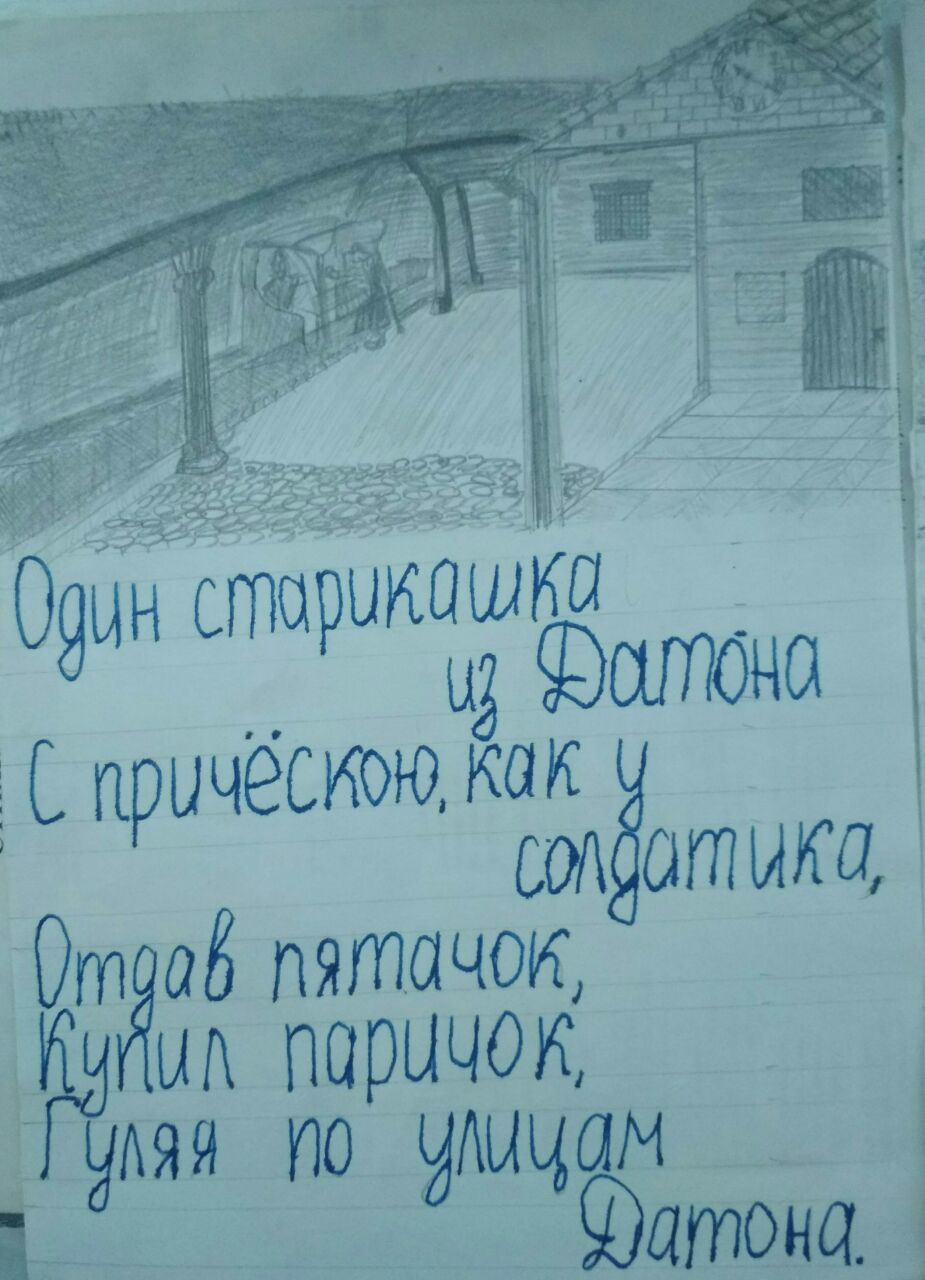 Один старикашка
из Датона
С причёскою, как у
солдатика,
Отдав пятачок,
Купил паричок,
Гуляя по улицам
Датона.